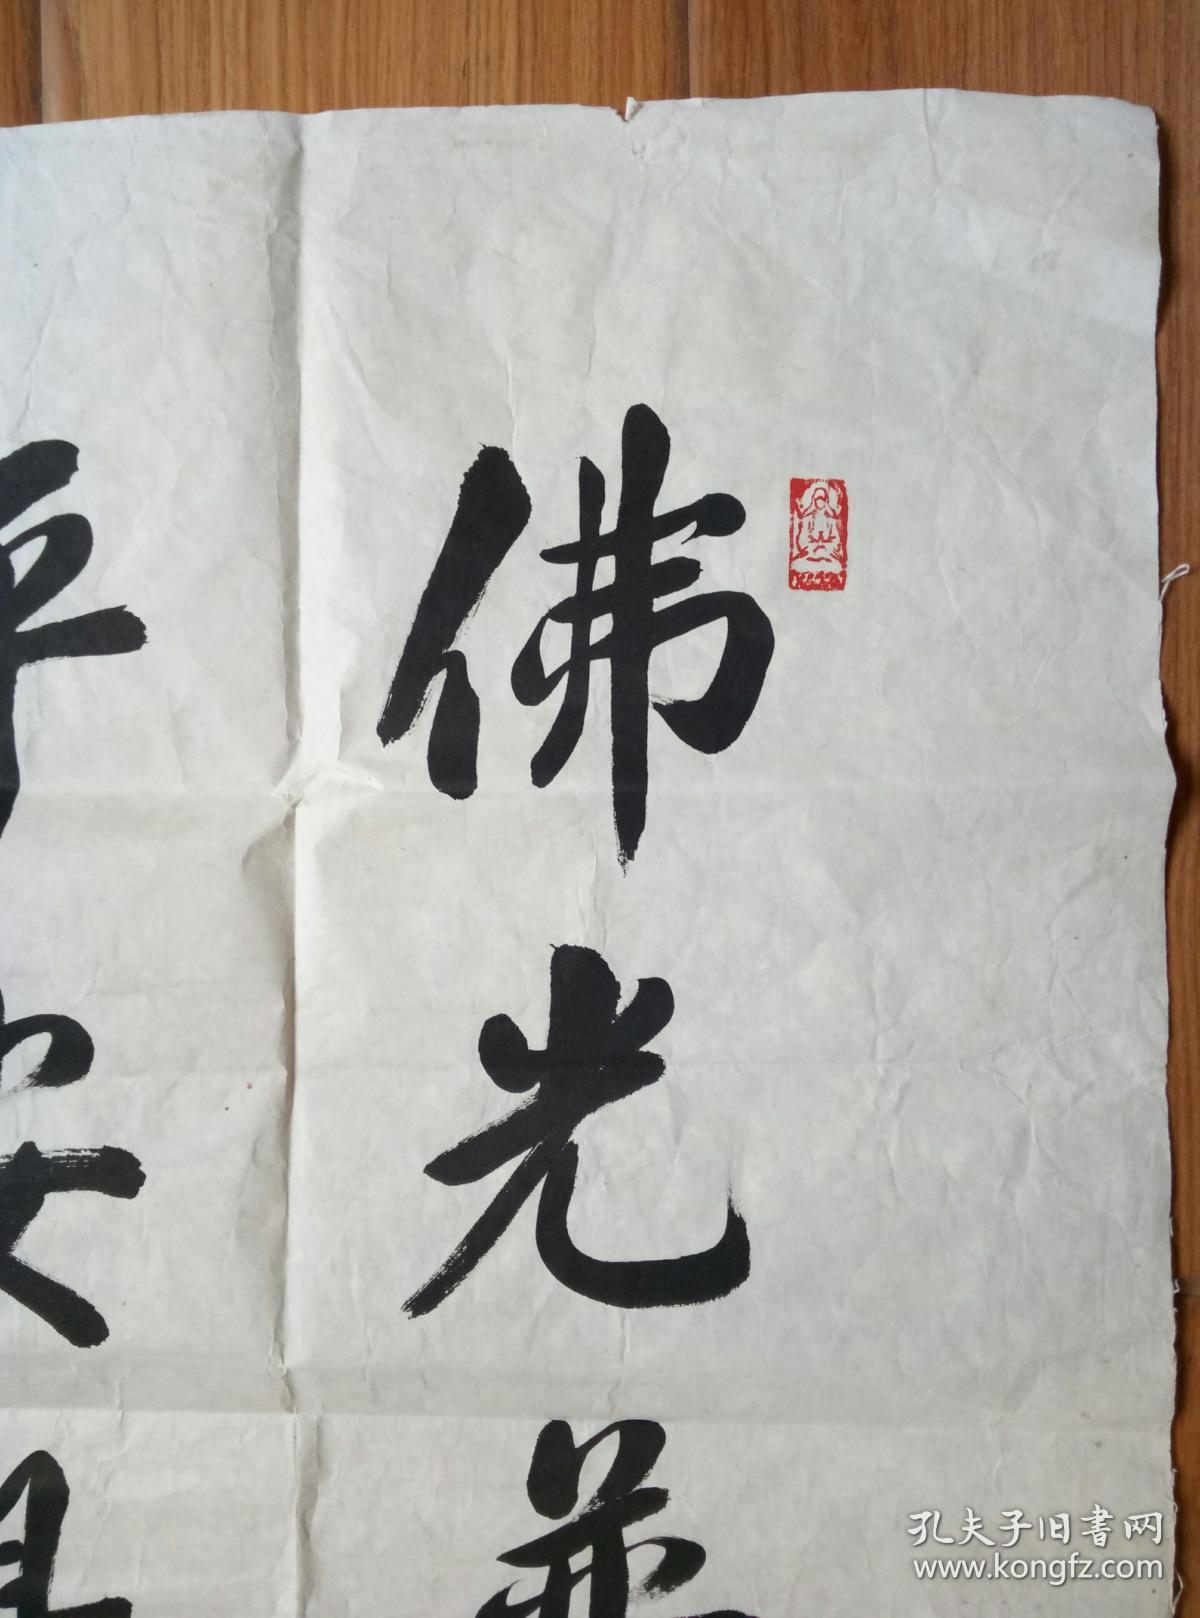 佛光普
平安
孔夫子旧書网
www.kongfz.com